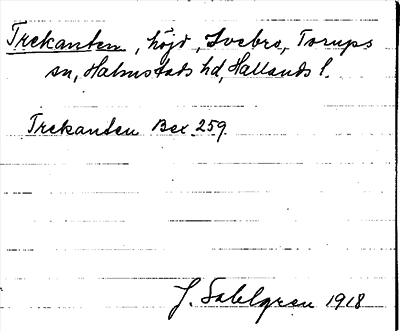 Trekanten, höjd, Svebro, Torups
sn, Halmstads hd, Hallands l.
Trekanten Bex 259
J. Sahlgren 1918